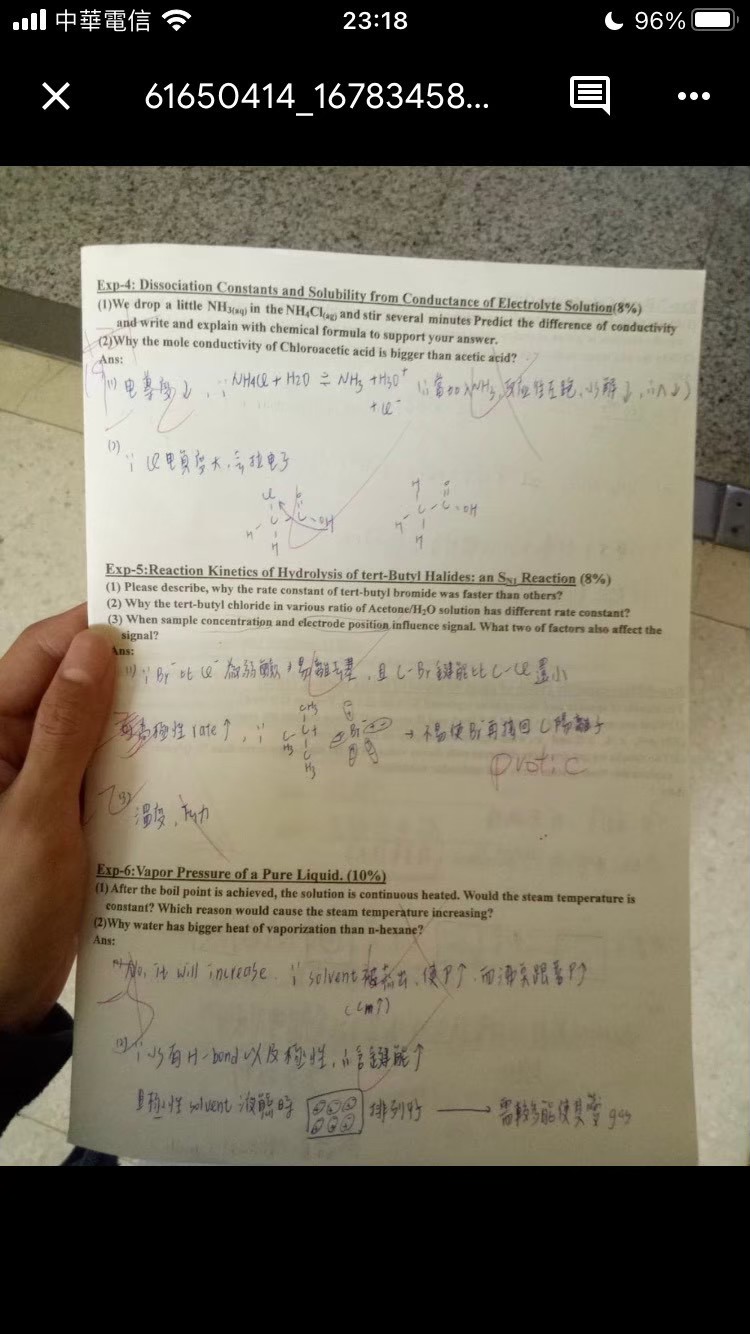 中華電信
23:18
96%
61650414_16783458...
Exp-4: Dissociation Constants and Solubility from Conductance of Electrolyte Solution(8%)
(1)We drop a little NH3(aq) in the NH4Cl(aq) and stir several minutes Predict the difference of conductivity
and write and explain with chemical formula to support your answer.
(2)Why the mole conductivity of Chloroacetic acid is bigger than acetic acid?
Ans:
(1) 電導度↓, ∵ NH4Cl + H2O ⇌ NH3 + H3O+
+ Cl-
(2)
∵ Cl電負度大, 會拉電子
Cl O
H C C OH
H
H O
H C C OH
H
Exp-5:Reaction Kinetics of Hydrolysis of tert-Butyl Halides: an SN1 Reaction (8%)
(1) Please describe, why the rate constant of tert-butyl bromide was faster than others?
(2) Why the tert-butyl chloride in various ratio of Acetone/H2O solution has different rate constant?
(3) When sample concentration and electrode position influence signal. What two of factors also affect the
signal?
Ans:
(1) ∵ Br- 比 Cl- 為弱鹼, 易離去基, 且 C-Br 鍵能比 C-Cl 還小
高極性 rate↑, ∵
CH3
C+
CH3
CH3
Br
→ 不易使Br再接回 C陽離子
protic
(3)
溫度,
Exp-6:Vapor Pressure of a Pure Liquid. (10%)
(1) After the boil point is achieved, the solution is continuous heated. Would the steam temperature is
constant? Which reason would cause the steam temperature increasing?
(2)Why water has bigger heat of vaporization than n-hexane?
Ans:
(1) No, it will increase. ∵ solvent 被蒸出, 使P↑, 而沸點跟著P↑
(Cm↑)
(2) ∵ 水有 H-bond 以及極性, ∴ 鍵能↑
且極性 solvent 液態時
排列好 → 需較多能使其變 gas